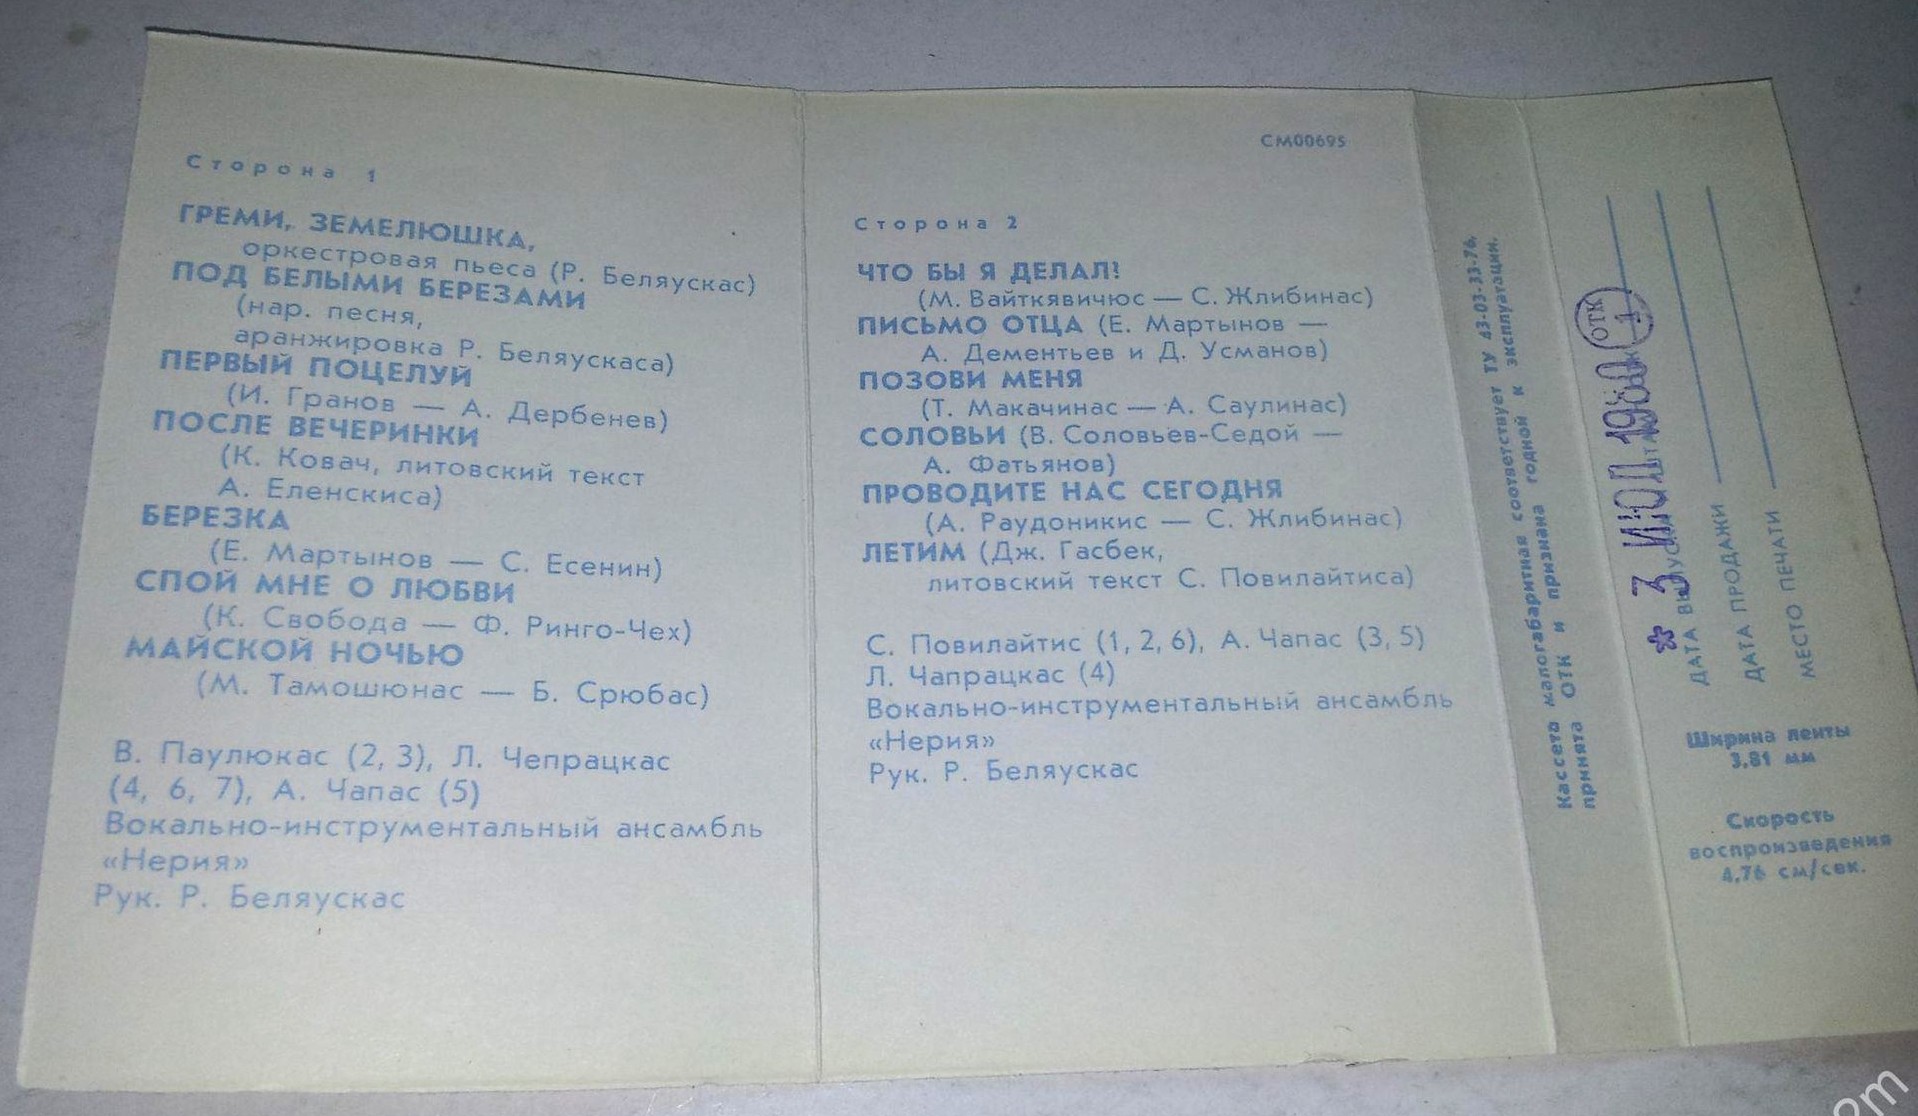 Сторона 1
ГРЕМИ, ЗЕМЕЛЮШКА,
оркестровая пьеса (Р. Беляускас)
ПОД БЕЛЫМИ БЕРЕЗАМИ
(нар. песня,
аранжировка Р. Беляускаса)
ПЕРВЫЙ ПОЦЕЛУЙ
(И. Гранов — А. Дербенев)
ПОСЛЕ ВЕЧЕРИНКИ
(К. Ковач, литовский текст
А. Еленскиса)
БЕРЕЗКА
(Е. Мартынов — С. Есенин)
СПОЙ МНЕ О ЛЮБВИ
(К. Свобода — Ф. Ринго-Чех)
МАЙСКОЙ НОЧЬЮ
(М. Тамошюнас — Б. Срюбас)
В. Паулюкас (2, 3), Л. Чепрацкас
(4, 6, 7), А. Чапас (5)
Вокально-инструментальный ансамбль
«Нерия»
Рук. Р. Беляускас
СМ00695
Сторона 2
ЧТО БЫ Я ДЕЛАЛ?
(М. Вайткявичюс — С. Жлибинас)
ПИСЬМО ОТЦА (Е. Мартынов —
А. Дементьев и Д. Усманов)
ПОЗОВИ МЕНЯ
(Т. Макачинас — А. Саулинас)
СОЛОВЬИ (В. Соловьев-Седой —
А. Фатьянов)
ПРОВОДИТЕ НАС СЕГОДНЯ
(А. Раудоникис — С. Жлибинас)
ЛЕТИМ (Дж. Гасбек,
литовский текст С. Повилайтиса)
С. Повилайтис (1, 2, 6), А. Чапас (3, 5)
Л. Чапрацкас (4)
Вокально-инструментальный ансамбль
«Нерия»
Рук. Р. Беляускас
Кассета малогабаритная соответствует ТУ 43-03-33-76,
принята ОТК и признана годной к эксплуатации.
* 3 ИЮЛ 1980
ОТК
1
ДАТА ВЫПУСКА
ДАТА ПРОДАЖИ
МЕСТО ПЕЧАТИ
Ширина ленты
3,81 мм
Скорость
воспроизведения
4,76 см/сек.